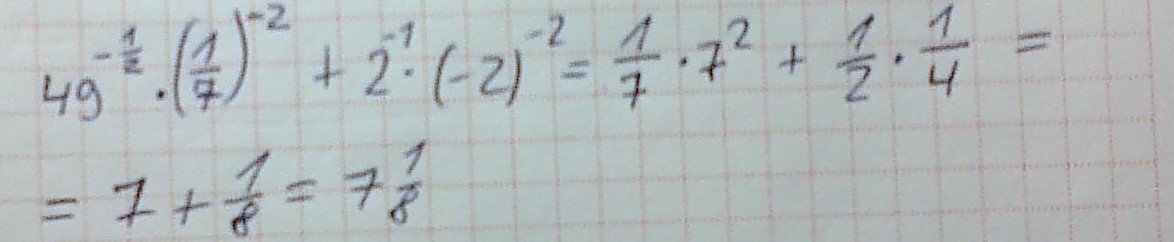 49^{-\frac{1}{2}} \cdot \left(\frac{1}{7}\right)^{-2} + 2^{-1} \cdot (-2)^{-2} = \frac{1}{7} \cdot 7^2 + \frac{1}{2} \cdot \frac{1}{4} =
= 7 + \frac{1}{8} = 7\frac{1}{8}